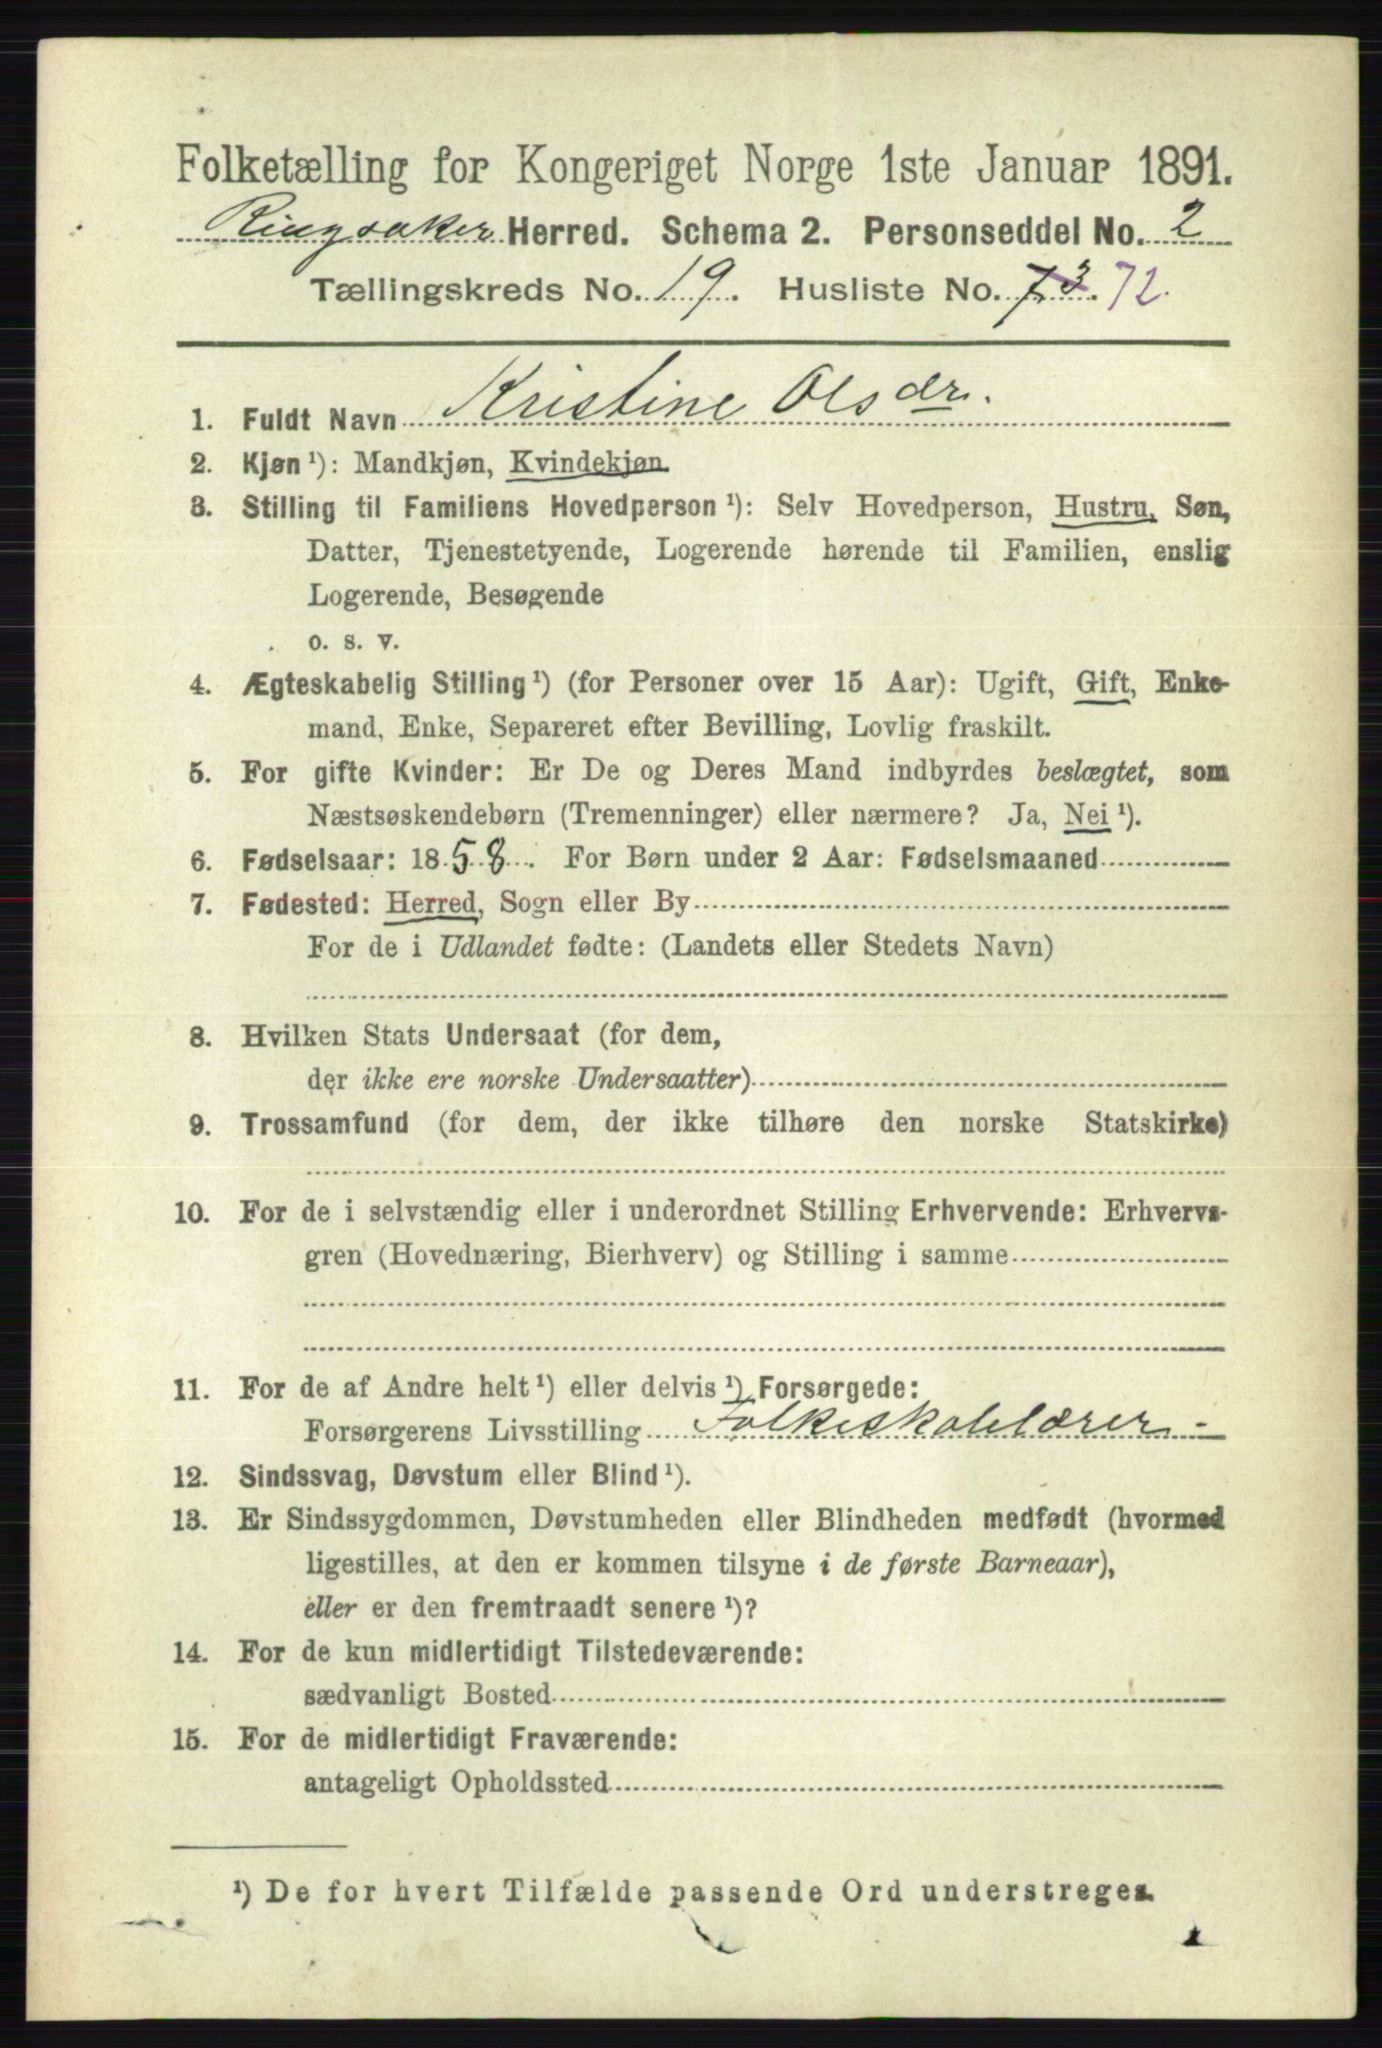 Folketælling for Kongeriget Norge 1ste Januar 1891.
Ringsaker Herred. Schema 2. Personseddel No. 2
Tællingskreds No. 19. Husliste No. 73. 72.
1. Fuldt Navn Kristine Olsdr.
2. Kjøn ¹): Mandkjøn, Kvindekjøn.
3. Stilling til Familiens Hovedperson ¹): Selv Hovedperson, Hustru, Søn,
Datter, Tjenestetyende, Logerende hørende til Familien, enslig
Logerende, Besøgende
o. s. v.
4. Ægteskabelig Stilling ¹) (for Personer over 15 Aar): Ugift, Gift, Enke-
mand, Enke, Separeret efter Bevilling, Lovlig fraskilt.
5. For gifte Kvinder: Er De og Deres Mand indbyrdes beslægtet, som
Næstsøskendebørn (Tremenninger) eller nærmere? Ja, Nei ¹).
6. Fødselsaar: 1858. For Børn under 2 Aar: Fødselsmaaned
7. Fødested: Herred, Sogn eller By
For de i Udlandet fødte: (Landets eller Stedets Navn)
8. Hvilken Stats Undersaat (for dem,
der ikke ere norske Undersaatter)
9. Trossamfund (for dem, der ikke tilhøre den norske Statskirke)
10. For de i selvstændig eller i underordnet Stilling Erhvervende: Erhvervs-
gren (Hovednæring, Bierhverv) og Stilling i samme
11. For de af Andre helt ¹) eller delvis ¹) Forsørgede:
Forsørgerens Livsstilling Folkeskolelærer -
12. Sindssvag, Døvstum eller Blind ¹).
13. Er Sindssygdommen, Døvstumheden eller Blindheden medfødt (hvormed
ligestilles, at den er kommen tilsyne i de første Barneaar),
eller er den fremtraadt senere ¹)?
14. For de kun midlertidigt Tilstedeværende:
sædvanligt Bosted
15. For de midlertidigt Fraværende:
antageligt Opholdssted
¹) De for hvert Tilfælde passende Ord understreges.